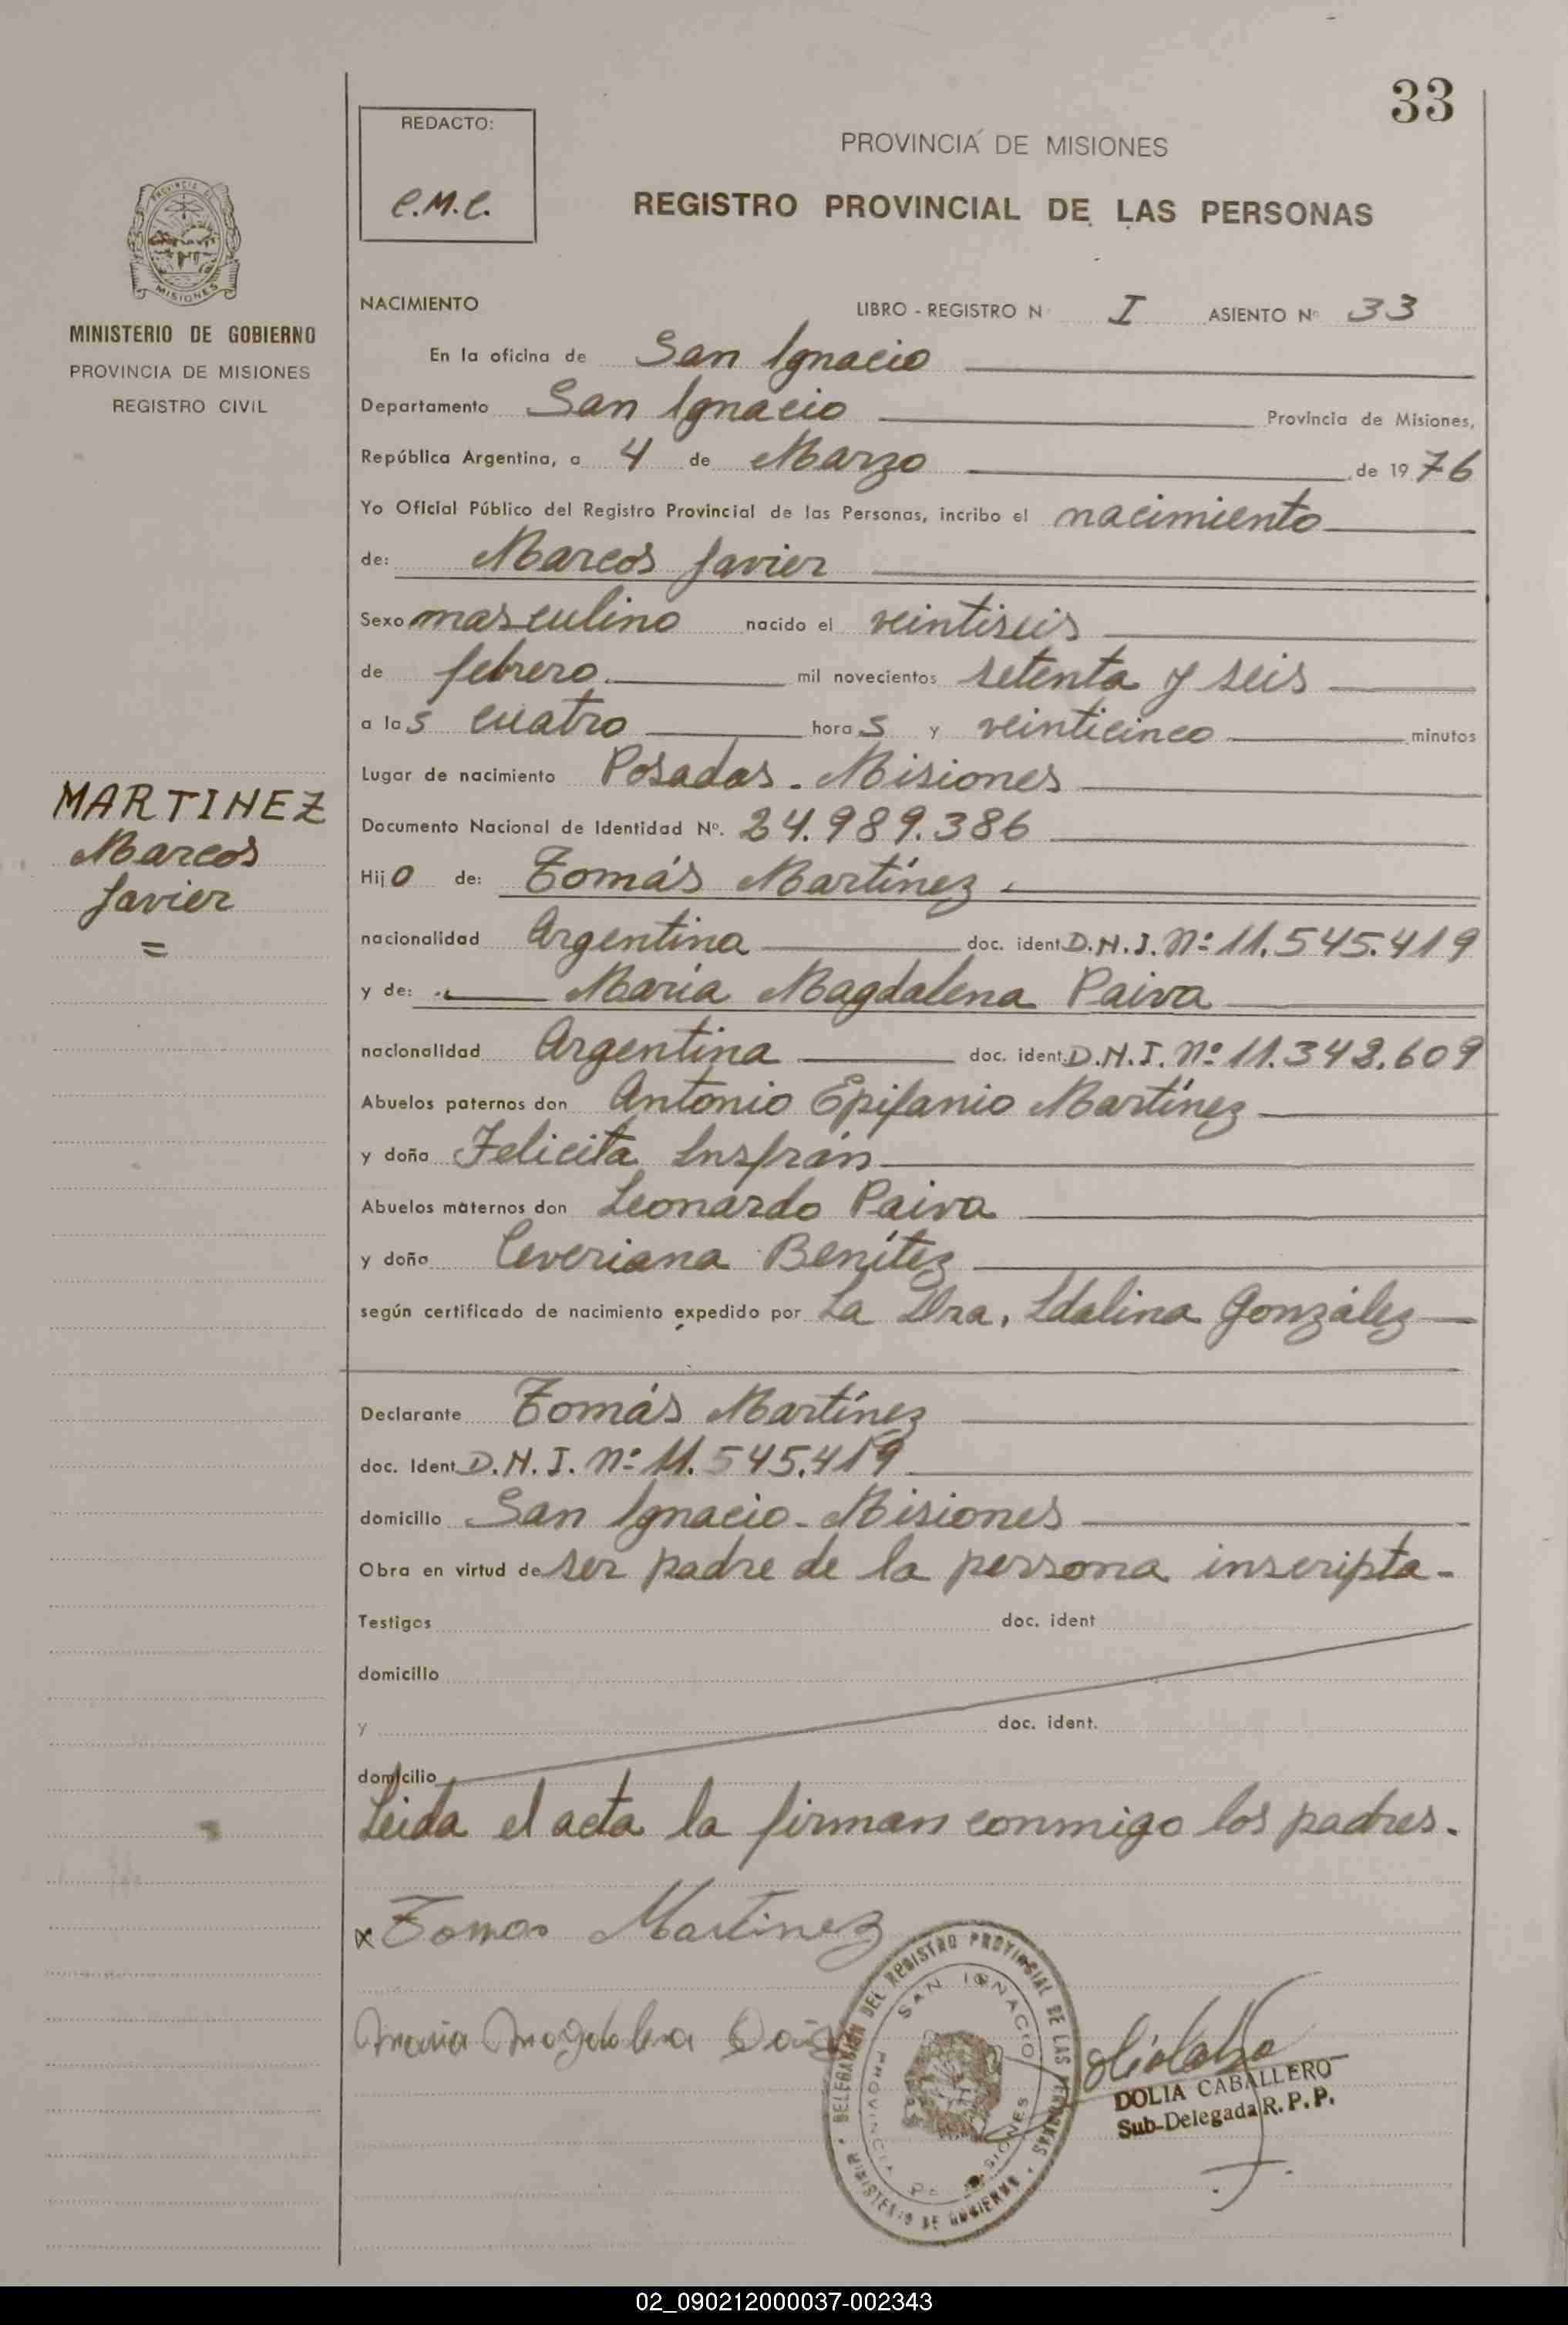 33
REDACTO:
C.M.C.
PROVINCIA DE MISIONES
REGISTRO PROVINCIAL DE LAS PERSONAS
MISIONES
MINISTERIO DE GOBIERNO
PROVINCIA DE MISIONES
REGISTRO CIVIL
NACIMIENTO LIBRO - REGISTRO N° I ASIENTO N° 33
En la oficina de San Ignacio
Departamento San Ignacio Provincia de Misiones,
República Argentina, a 4 de Marzo de 1976
Yo Oficial Público del Registro Provincial de las Personas, incribo el nacimiento
de: Marcos Javier
Sexo masculino nacido el veintiseis
de febrero. mil novecientos setenta y seis
a las cuatro horas y veinticinco minutos
Lugar de nacimiento Posadas - Misiones
MARTINEZ
Marcos
Javier
=
Documento Nacional de Identidad N°. 24.989.386
Hijo de: Tomás Martínez
nacionalidad Argentina doc. ident. D.N.I. Nº 11.545.419
y de: María Magdalena Paiva
nacionalidad Argentina doc. ident. D.N.I. Nº 11.342.609
Abuelos paternos don Antonio Epifanio Martínez
y doña Felicita Insfrán
Abuelos maternos don Leonardo Paiva
y doña Ceveriana Benítez
según certificado de nacimiento expedido por La Dra. Idalina González
Declarante Tomás Martínez
doc. Ident. D.N.I. Nº 11.545.419
domicilio San Ignacio - Misiones
Obra en virtud de ser padre de la persona inscripta-
Testigos doc. ident
domicilio
y doc. ident.
domicilio
Leida el acta la firman conmigo los padres.
x Tomas Martinez
Maria Magdalena
DELEGACIÓN DEL REGISTRO PROVINCIAL DE LAS PERSONAS
SAN IGNACIO
PROVINCIA DE MISIONES
MINISTERIO DE GOBIERNO
DOLIA CABALLERO
Sub-Delegada R.P.P.
02_090212000037-002343